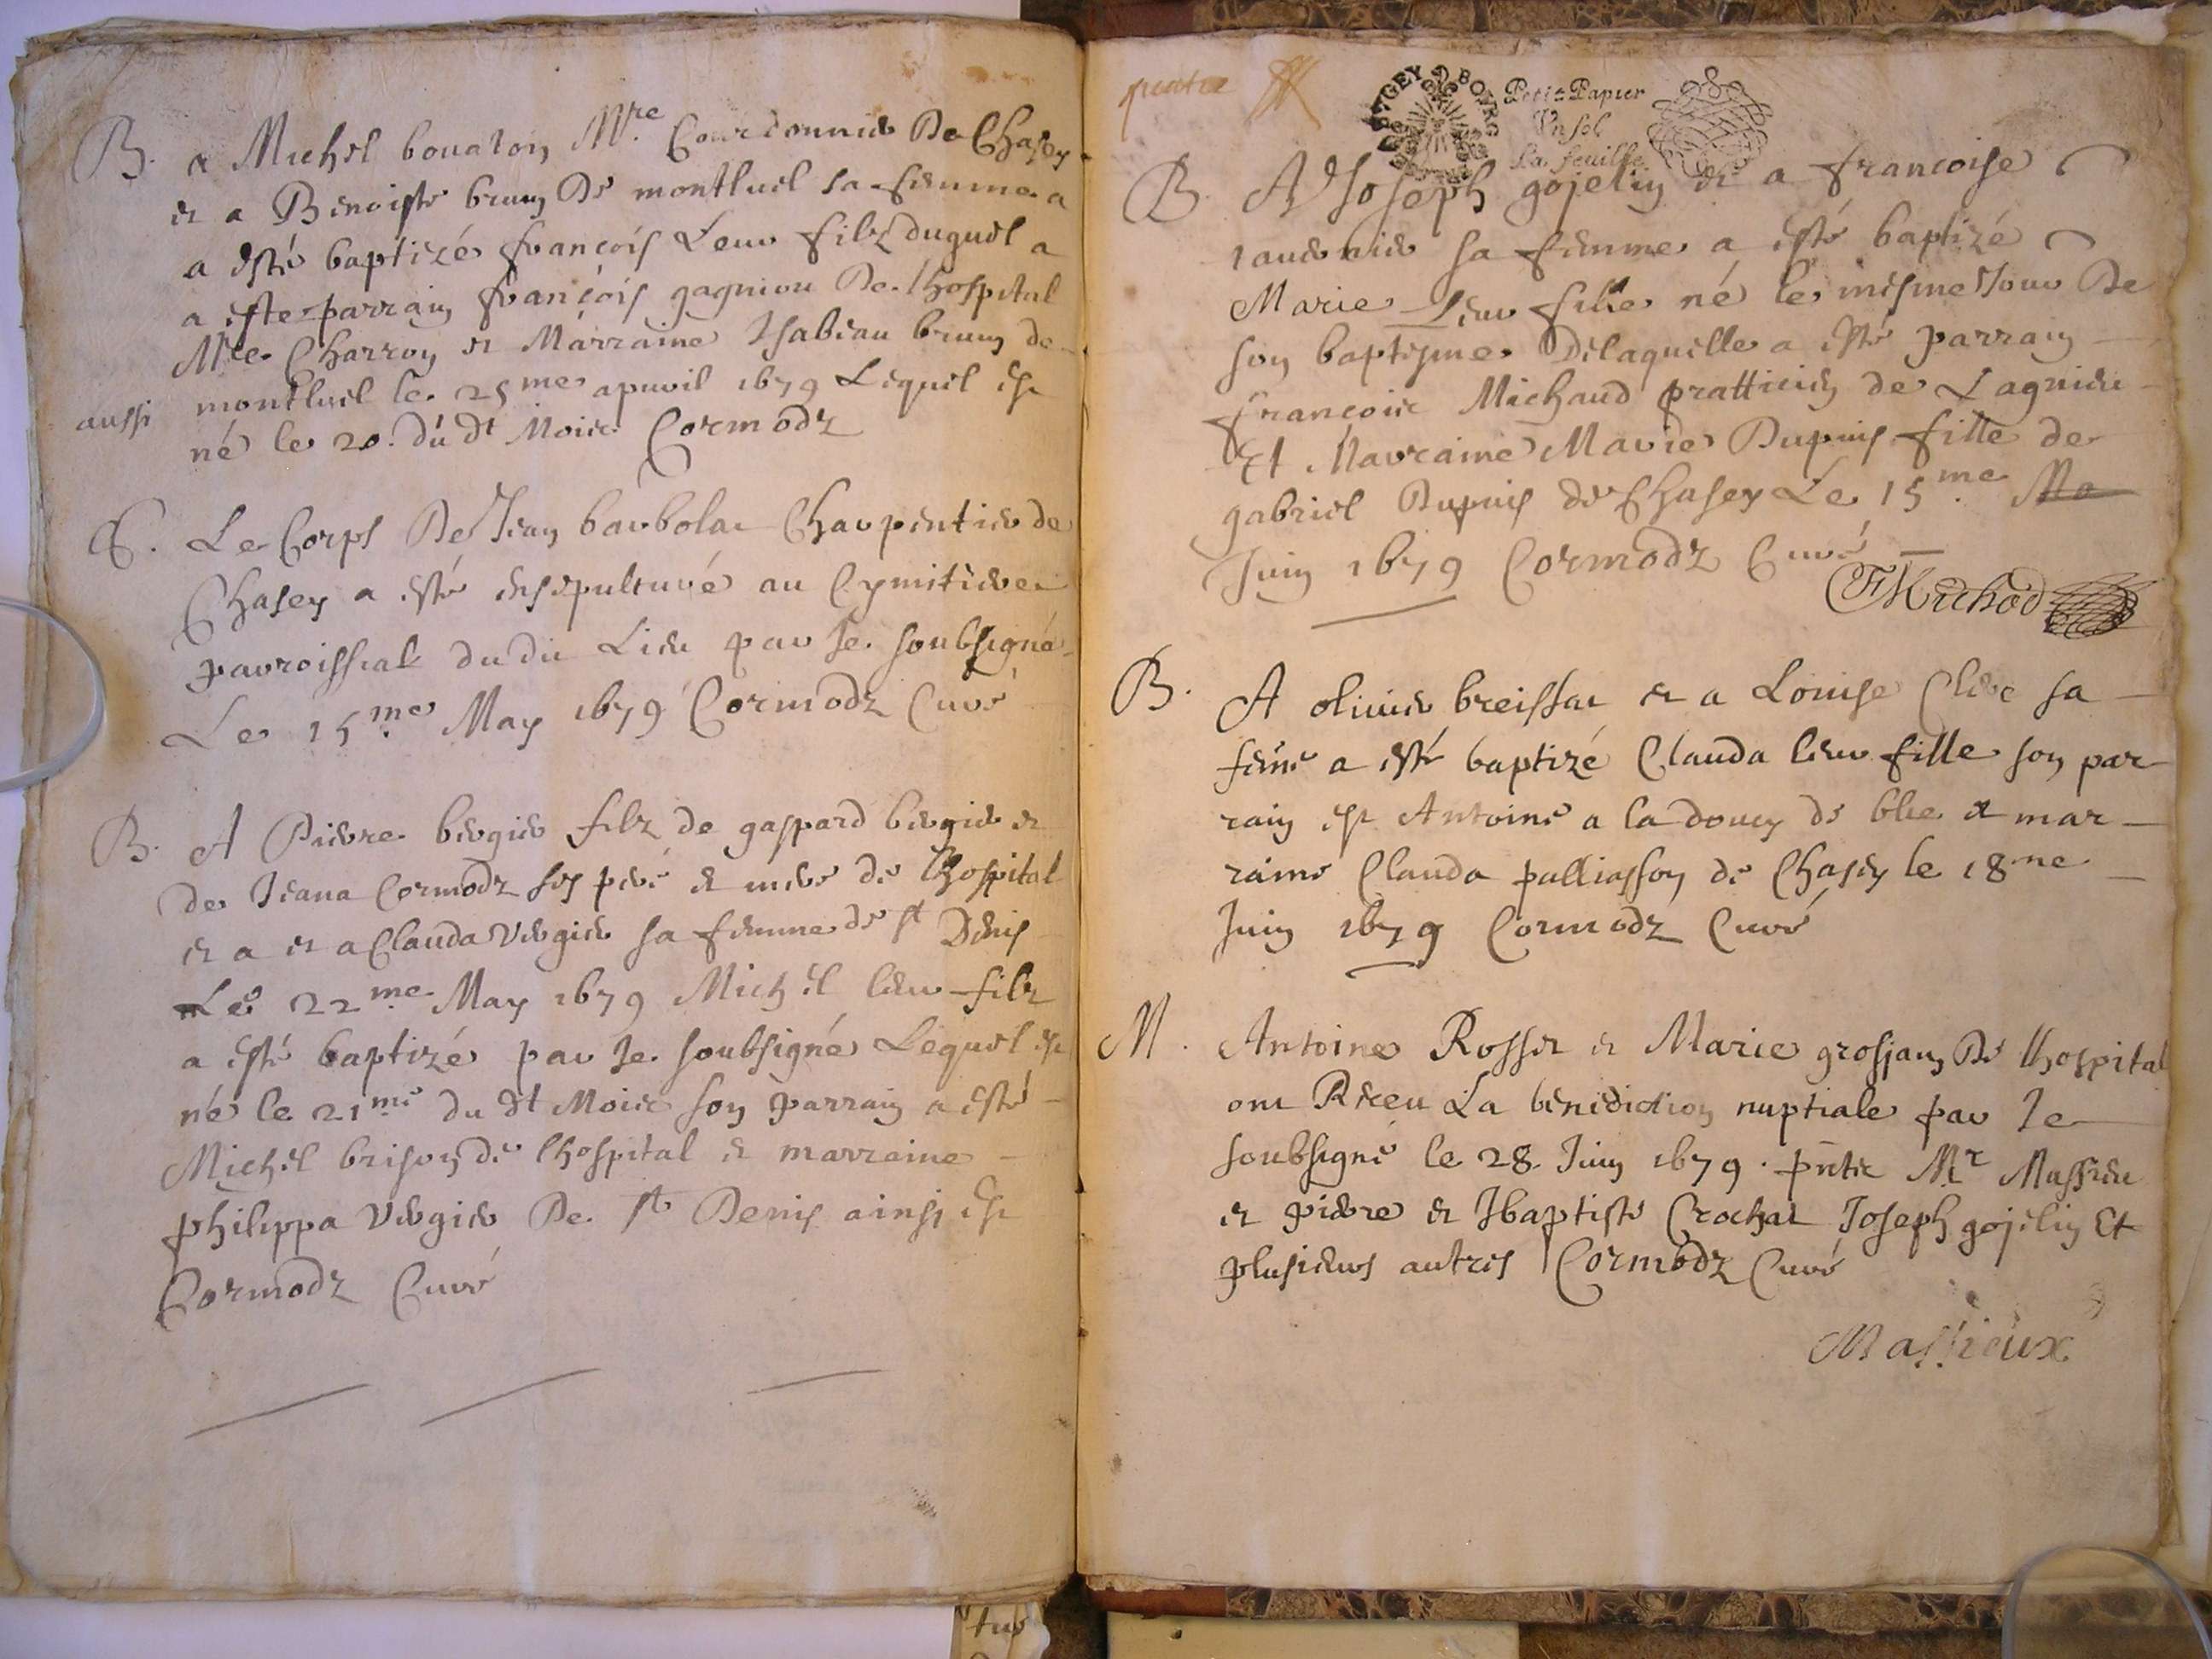 B. a Michel bouaton Mre Courdonnier De Chasey
et a Benoiste brun De montluel sa femme a
a esté baptizé francois Leur filz duquel a
a este parrain francois gagnieu De lhospital
Mre Charron et Marraine Isabeau brun de
aussi montluel le 25me apuril 1679 Lequel est
né le 20. du dt Mois Cormodz
S. Le Corps De Jean barbolat Charpentier de
Chasey a esté ensepulturé au Cymitiere
parroissial du dit Lieu par Je soubsigné
Le 15me May 1679 Cormodz Curé
B. A Pierre bergier filz de gaspard bergier et
de Jeana Cormodz ses peré et mere de lhospital
et a et a Clauda Vergier sa femme de st Denis
Le 22me May 1679 Michel leur filz
a esté baptizé par Je soubsigné Lequel est
né le 21me du dt Mois son parrain a esté
Michel brison de lhospital et marraine
philippa Vergier De st Denis ainsi est
Cormodz Curé
BVGEY BOVRG
Petit Papier
Vn sol
La feuille
B. A Joseph gojelin et a francoise
sa femme a esté baptizé
Marie Leur fille né le mesme Jour De
son baptesme Delaquelle a esté parrain
francois Michaud pratticien de Lagnieu
Et Marraine Marie Dupuis fille de
gabriel Dupuis de Chasey Le 15me Ma
Juin 1679 Cormodz Curé
F Michod
B. A olivier breissat et a Louise Clerc sa
feme a esté baptizé Clauda leur fille son par
rain est Antoine a la doucy de blie et mar
raine Clauda palliasson de Chasey le 18me
Juin 1679 Cormodz Curé
M. Antoine Rosset et Marie grosjean De lhospital
ont Receu La benediction nuptiale par Je
soubsigné le 28 Juin 1679. pntz Mr Massieu
et pierre et Jbaptiste Crochat Joseph gojelin Et
plusieurs autres Cormodz Curé
Massieux